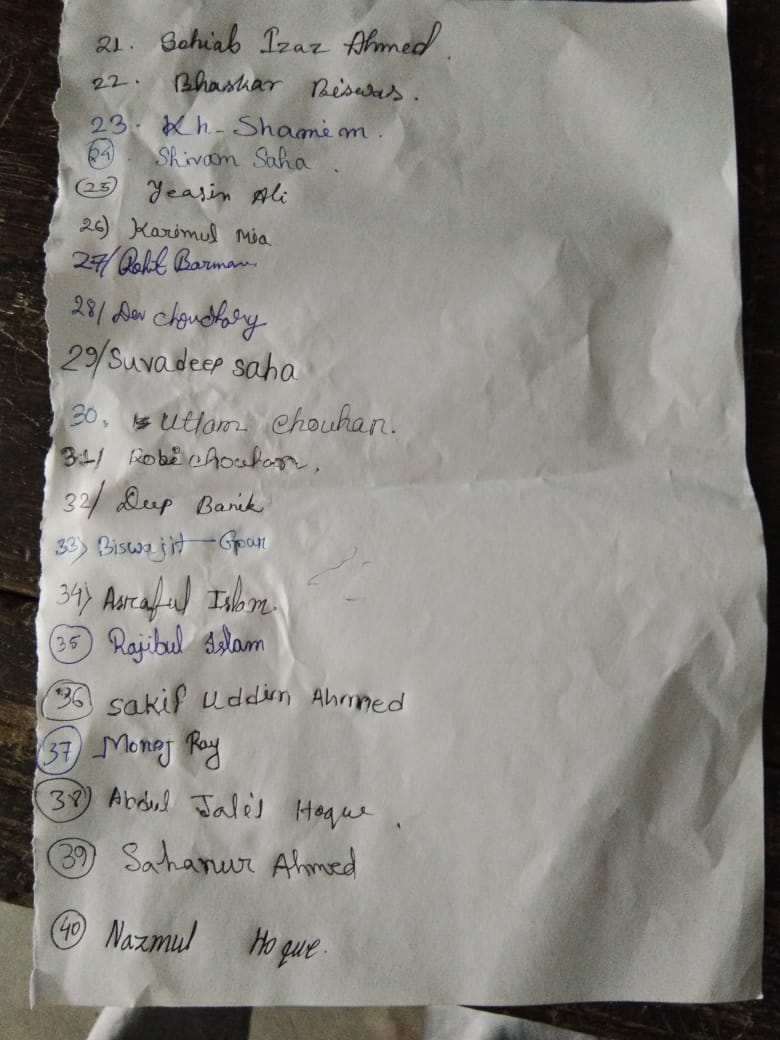 21. Sohiab Izaz Ahmed.
22. Bhaskar Biswas.
23. Kh-Shamim.
24. Shivam Saha.
25 Yeasin Ali
26) Karimul Mia
27/ Rohit Barman
28/ Dev Choudhary
29/ Suvadeep saha
30. Uttam Chouhan.
31/ Robi chouhan.
32/ Deep Banik
33) Biswajit Gour
34) Asraful Islam.
35 Rajibul Islam
36 Sakif Uddin Ahmed
37 Monoj Ray
38) Abdul Jalil Hoque.
39) Sahanur Ahmed
40 Nazmul Hoque.